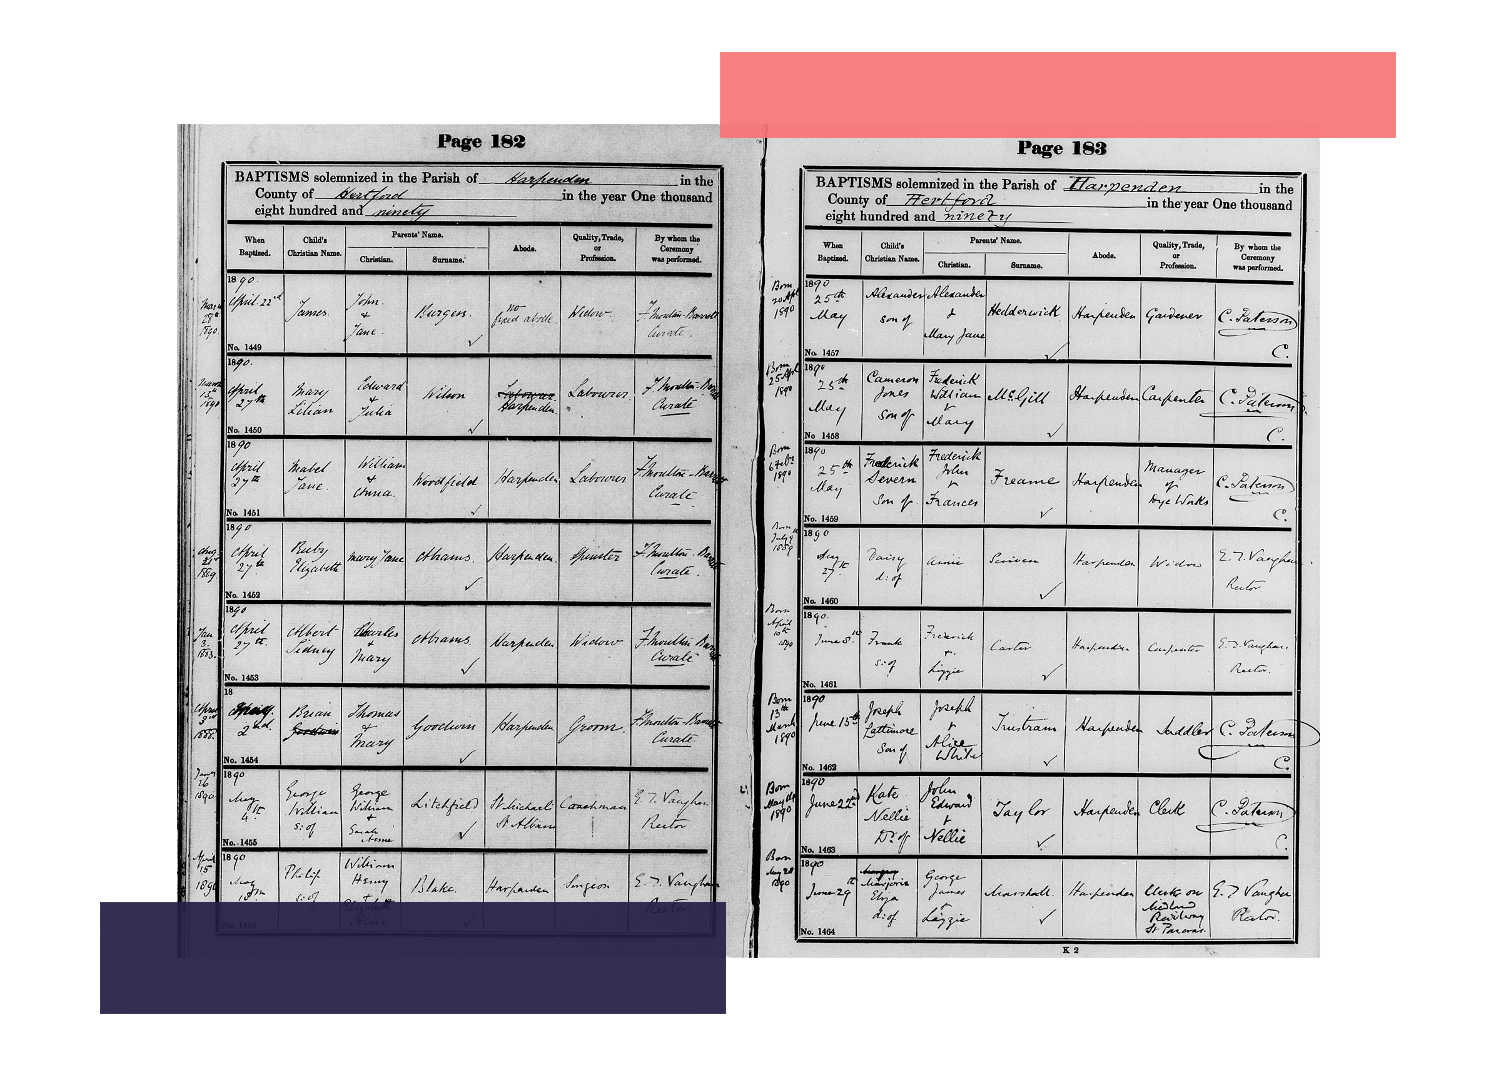 Page 182
BAPTISMS solemnized in the Parish of Harpenden in the
County of Hertford in the year One thousand
eight hundred and ninety
When Baptized. Child's Christian Name. Parents' Name. Christian. Surname. Abode. Quality, Trade, or Profession. By whom the Ceremony was performed.
1890.
April 22nd James. John & Jane. Burgess. no fixed abode. Widow. F. Moulton-Barrett Curate.
No. 1449
1890.
April 27th Mary Lilian Edward & Julia Wilson Labourer Harpenden. Labourer. F. Moulton-Barrett Curate
No. 1450
1890
April 27th Mabel Jane. William & Anna. Woodfield Harpenden. Labourer F. Moulton-Barrett Curate
No. 1451
1890
April 27th Ruby Elizabeth Mary Jane Abrams. Harpenden. Spinster F. Moulton-Barrett Curate.
No. 1452
1890
April 27th. Albert Sidney Charles & Mary Abrams. Harpenden Widow F. Moulton-Barrett Curate
No. 1453
18
2nd. Brian Thomas & Mary Goodwin Harpenden Groom. F. Moulton-Barrett Curate
No. 1454
1890
May 4th George William s: of George William & Sarah Anne Litchfield St Michael's St Albans Coachman E. T. Vaughan Rector
No. 1455
1890
May Philip s: of William Henry Blake. Harpenden Surgeon E. T. Vaughan Rector
No. 1456
Page 183
BAPTISMS solemnized in the Parish of Harpenden in the
County of Hertford in the year One thousand
eight hundred and ninety
When Baptized. Child's Christian Name. Parents' Name. Christian. Surname. Abode. Quality, Trade, or Profession. By whom the Ceremony was performed.
Born 20 Apl 1890
1890
25th May Alexander son of Alexander & Mary Jane Hedderwick Harpenden Gardener C. Paterson C.
No. 1457
Born 25 Apl 1890
1890
25th May Cameron Jones son of Frederick William & Mary McGill Harpenden Carpenter C. Paterson C.
No. 1458
Born 6 Feb 1890
1890
25th May Frederick Severn son of Frederick John & Frances Freame Harpenden Manager of Dye Works C. Paterson C.
No. 1459
Born July 1889
1890
May 27th Daisy d: of Annie Scriven Harpenden Widow E. T. Vaughan Rector
No. 1460
Born April 10th 1890
1890.
June 8th Frank s: of Frederick & Lizzie Carter Harpenden Carpenter E. T. Vaughan. Rector.
No. 1461
Born 13th March 1890
1890
June 15th Joseph Lattimore son of Joseph & Alice White Trustram Harpenden Saddler C. Paterson C.
No. 1462
Born May 1890
1890
June 22nd Kate Nellie Dr. of John Edward & Nellie Taylor Harpenden Clerk C. Paterson C.
No. 1463
Born May 28 1890
1890
June 29th Marjorie Eliza d: of George James & Lizzie Marshall. Harpenden Clerk on Midland Railway St Pancras. E. T. Vaughan Rector.
No. 1464
K 2